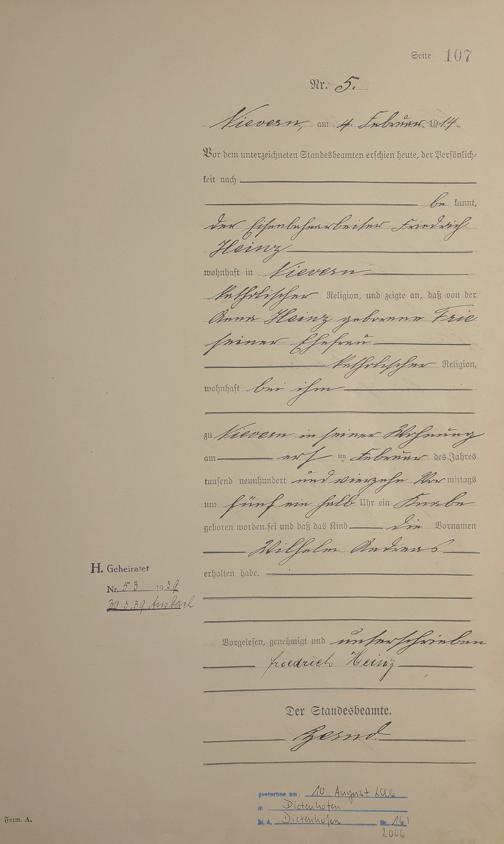 Seite 107
Nr. 5.
Nievern, am 4. Februar 1914.
Vor dem unterzeichneten Standesbeamten erschien heute, der Persönlich-
keit nach
be kannt,
der Eisenbahnarbeiter Friedrich
Heinz
wohnhaft in Nievern
katholischer Religion, und zeigte an, daß von der
Anna Heinz geborenen
seiner Ehefrau
katholischer Religion,
wohnhaft bei ihm
zu Nievern in seiner Wohnung
am im Februar des Jahres
tausend neunhundert und vierzehn Vor mittags
um fünf ein halb Uhr ein Knabe
geboren worden sei und daß das Kind die Vornamen
Wilhelm Andreas
erhalten habe.
H. Geheiratet
Nr. 53 1939
Vorgelesen, genehmigt und unterschrieben
Friedrich Heinz
Der Standesbeamte.
gestorben am: 10. August 2006
in Dietenhofen
St. A. Dietenhofen Nr.
2006
Form. A.